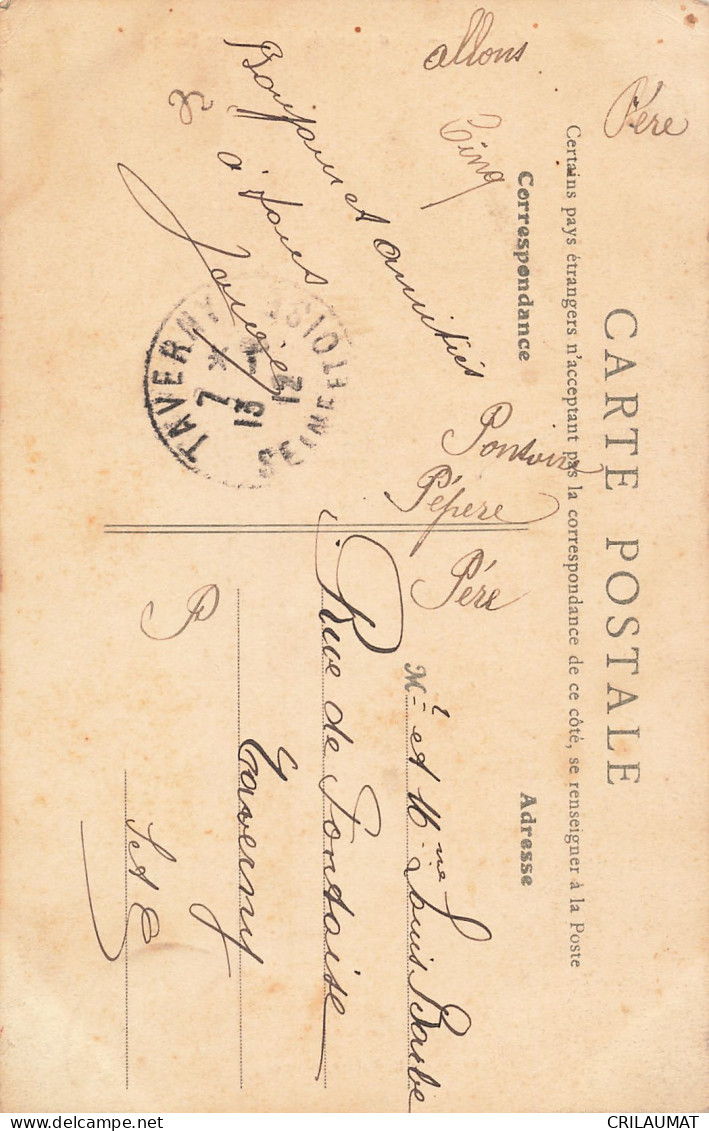 CARTE POSTALE
Certains pays étrangers n'acceptent pas la correspondance de ce côté, se renseigner à la Poste
Correspondance
Adresse
Père
allons
Cinq
Bonjour et amitiés
à tous
TAVERNY
SEINE-ET-OISE
7 *
13 -4
12
Pontoise
Pépere
Père
P
Mr et Mme Louis Barbe
Rue de Pontoise
Taverny
S et O
CRILAUMAT